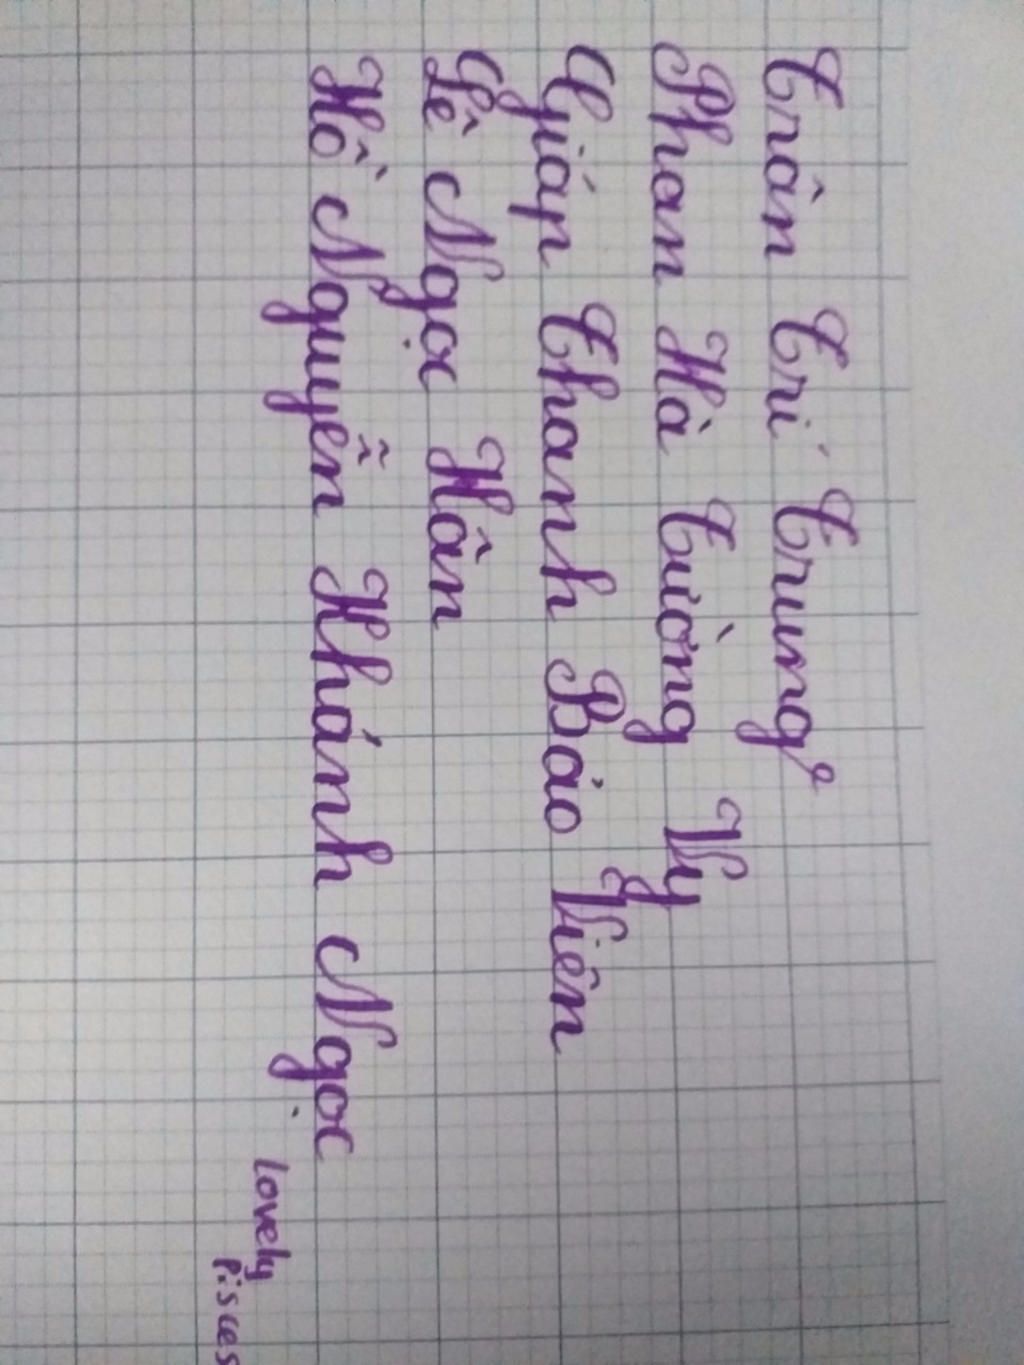 Trần Trí Trung
Phan Hà Tường Vy
Giáp Thanh Bảo Viên
Lê Ngọc Hân
Hồ Nguyễn Khánh Ngọc
lovely
Pisces